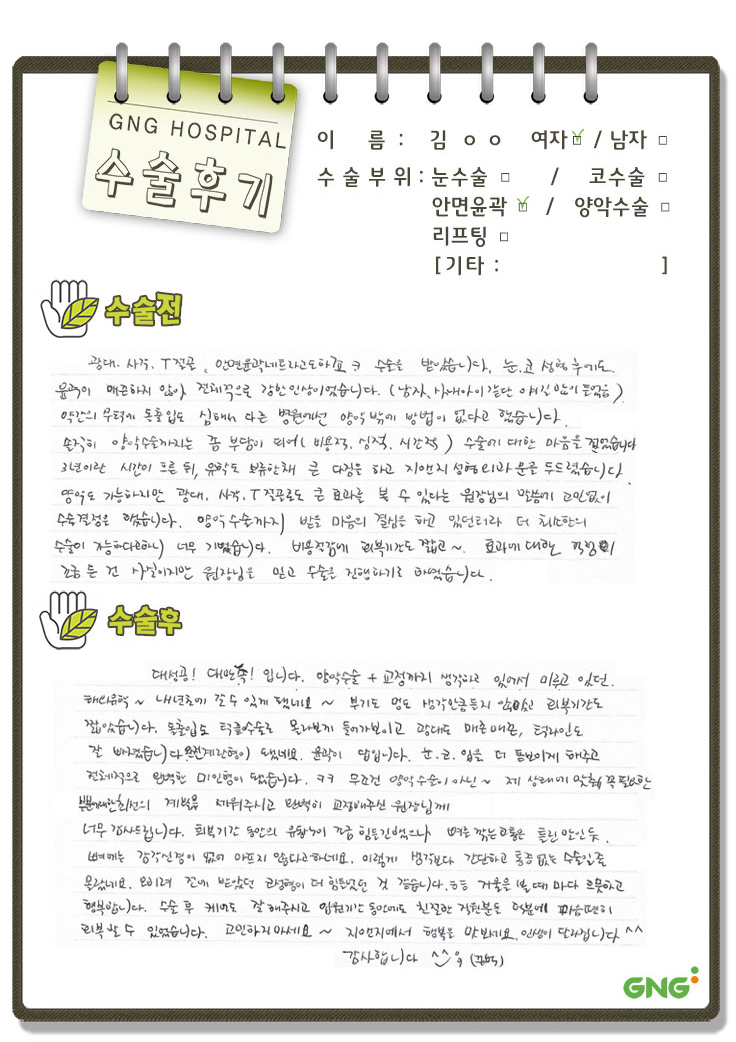 GNG HOSPITAL
수술후기
이 름 : 김 ㅇ ㅇ 여자 / 남자
수술부위 : 눈수술 / 코수술
안면윤곽 / 양악수술
리프팅
[기타 : ]
수술전
광대, 사각, T절골, 안면윤곽세트라고도하죠 ㅋ 수술을 받았습니다. 눈,코 성형 후에도
윤곽이 매끈하지 않아 전체적으로 강한 인상이었습니다. (남자,
약간의 무턱에 돌출입도 심해서 다른 병원에선 양악 밖에 방법이 없다고 했습니다.
솔직히 양악수술까지는 좀 부담이 되어 (비용적, 심적, 시간적) 수술에 대한 마음을 접었습니다
3년이란 시간이 흐른 뒤, 유학도 보류한채 큰 다짐을 하고 지앤지성형외과 문을 두드렸습니다.
양악도 가능하지만 광대, 사각, T절골로도 큰 효과를 볼 수 있다는 원장님의 말씀에 고민없이
수술결정을 하였습니다. 양악수술까지 받을 마음의 결심을 하고 있던터라 더 최소한의
수술이 가능하다고하니 너무 기뻤습니다. 비용절감에 회복기간도 짧고~. 효과에 대한 걱정이
조금 든 건 사실이지만 원장님을 믿고 수술을 진행하기로 하였습니다.
수술후
대성공! 대만족! 입니다. 양악수술 + 교정까지 생각하고 있어서 미루고 있던.
해외유학 ~ 내년초에 갈 수 있게 됐네요 ~ 부기도 멍도 생각만큼 듣지 않았고 회복기간도
짧았습니다. 돌출입도 턱끝수술로 몰라보게 들어가보이고 광대도 매끈매끈, 턱라인도
잘 빠졌습니다 완전계란형이 됐네요. 윤곽이 답입니다. 눈.코.입을 더 돋보이게 해주고
전체적으로 완벽한 미인형이 됐습니다. ㅋㅋ 무조건 양악수술이 아닌 ~ 제 상태에 맞춰 꼭 필요한
최선의 계획을 세워주시고 완벽히 교정해주신 원장님께
너무 감사드립니다. 회복기간 동안의 조금 힘들긴 했으나 뼈를 깎는고통은 틀린 말인 듯.
뼈에는 감각신경이 없어 아프지 않다고하네요. 이렇게 생각보다 간단하고 통증없는 수술인줄
몰랐네요. 오히려 전에 받았던 코성형이 더 힘들었던 것 같습니다.ㅎㅎ 거울을 볼 때 마다 흐뭇하고
행복합니다. 수술 후 케어도 잘 해주시고 입원기간 동안에도 친절한 직원분들 덕분에 마음편히
회복할 수 있었습니다. 고민하지마세요 ~ 지앤지에서 행복을 맛보세요. 인생이 달라집니다 ^^
감사합니다 ^^
GNG